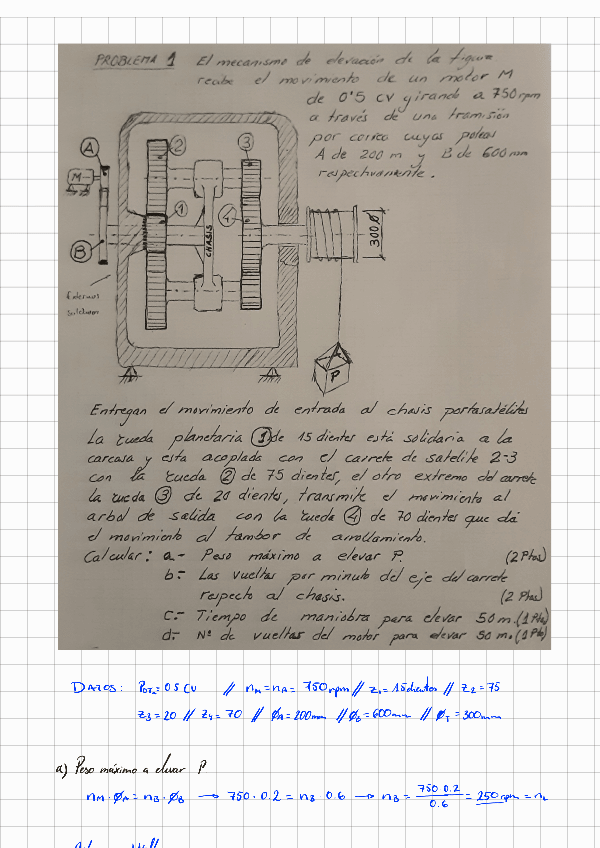 PROBLEMA 1 El mecanismo de elevación de la figura
recibe el movimiento de un motor M
de 0'5 CV girando a 750 rpm
a través de una tramisión
por correa cuyas poleas
A de 200 m y B de 600 mm
respectivamente.
A
2
3
M
1
4
CHASIS
B
300 Ø
P
Entregan el movimiento de entrada al chasis portasatélites
La rueda planetaria 1 de 15 dientes está solidaria a la
carcasa y esta acoplada con el carrete de satelite 2-3
con la rueda 2 de 75 dientes, el otro extremo del carrete
la rueda 3 de 20 dientes, transmite el movimiento al
arbol de salida con la rueda 4 de 70 dientes que dá
el movimiento al tambor de arrollamiento.
Calcular: a- Peso máximo a elevar P. (2 Ptos)
b- Las vueltas por minuto del eje del carrete
respecto al chasis. (2 Ptos)
c- Tiempo de maniobra para elevar 50 m. (1 Pto)
d- Nº de vueltas del motor para elevar 50 m. (1 Pto)
DATOS: Pot = 0.5 CV // nM = nA = 750 rpm // z1 = 15 dientes // z2 = 75
z3 = 20 // z4 = 70 // ØA = 200mm // ØB = 600mm // ØT = 300mm
a) Peso máximo a elevar P
nM · ØA = nB · ØB → 750 · 0.2 = nB · 0.6 → nB = 750·0.2 / 0.6 = 250 rpm = nL